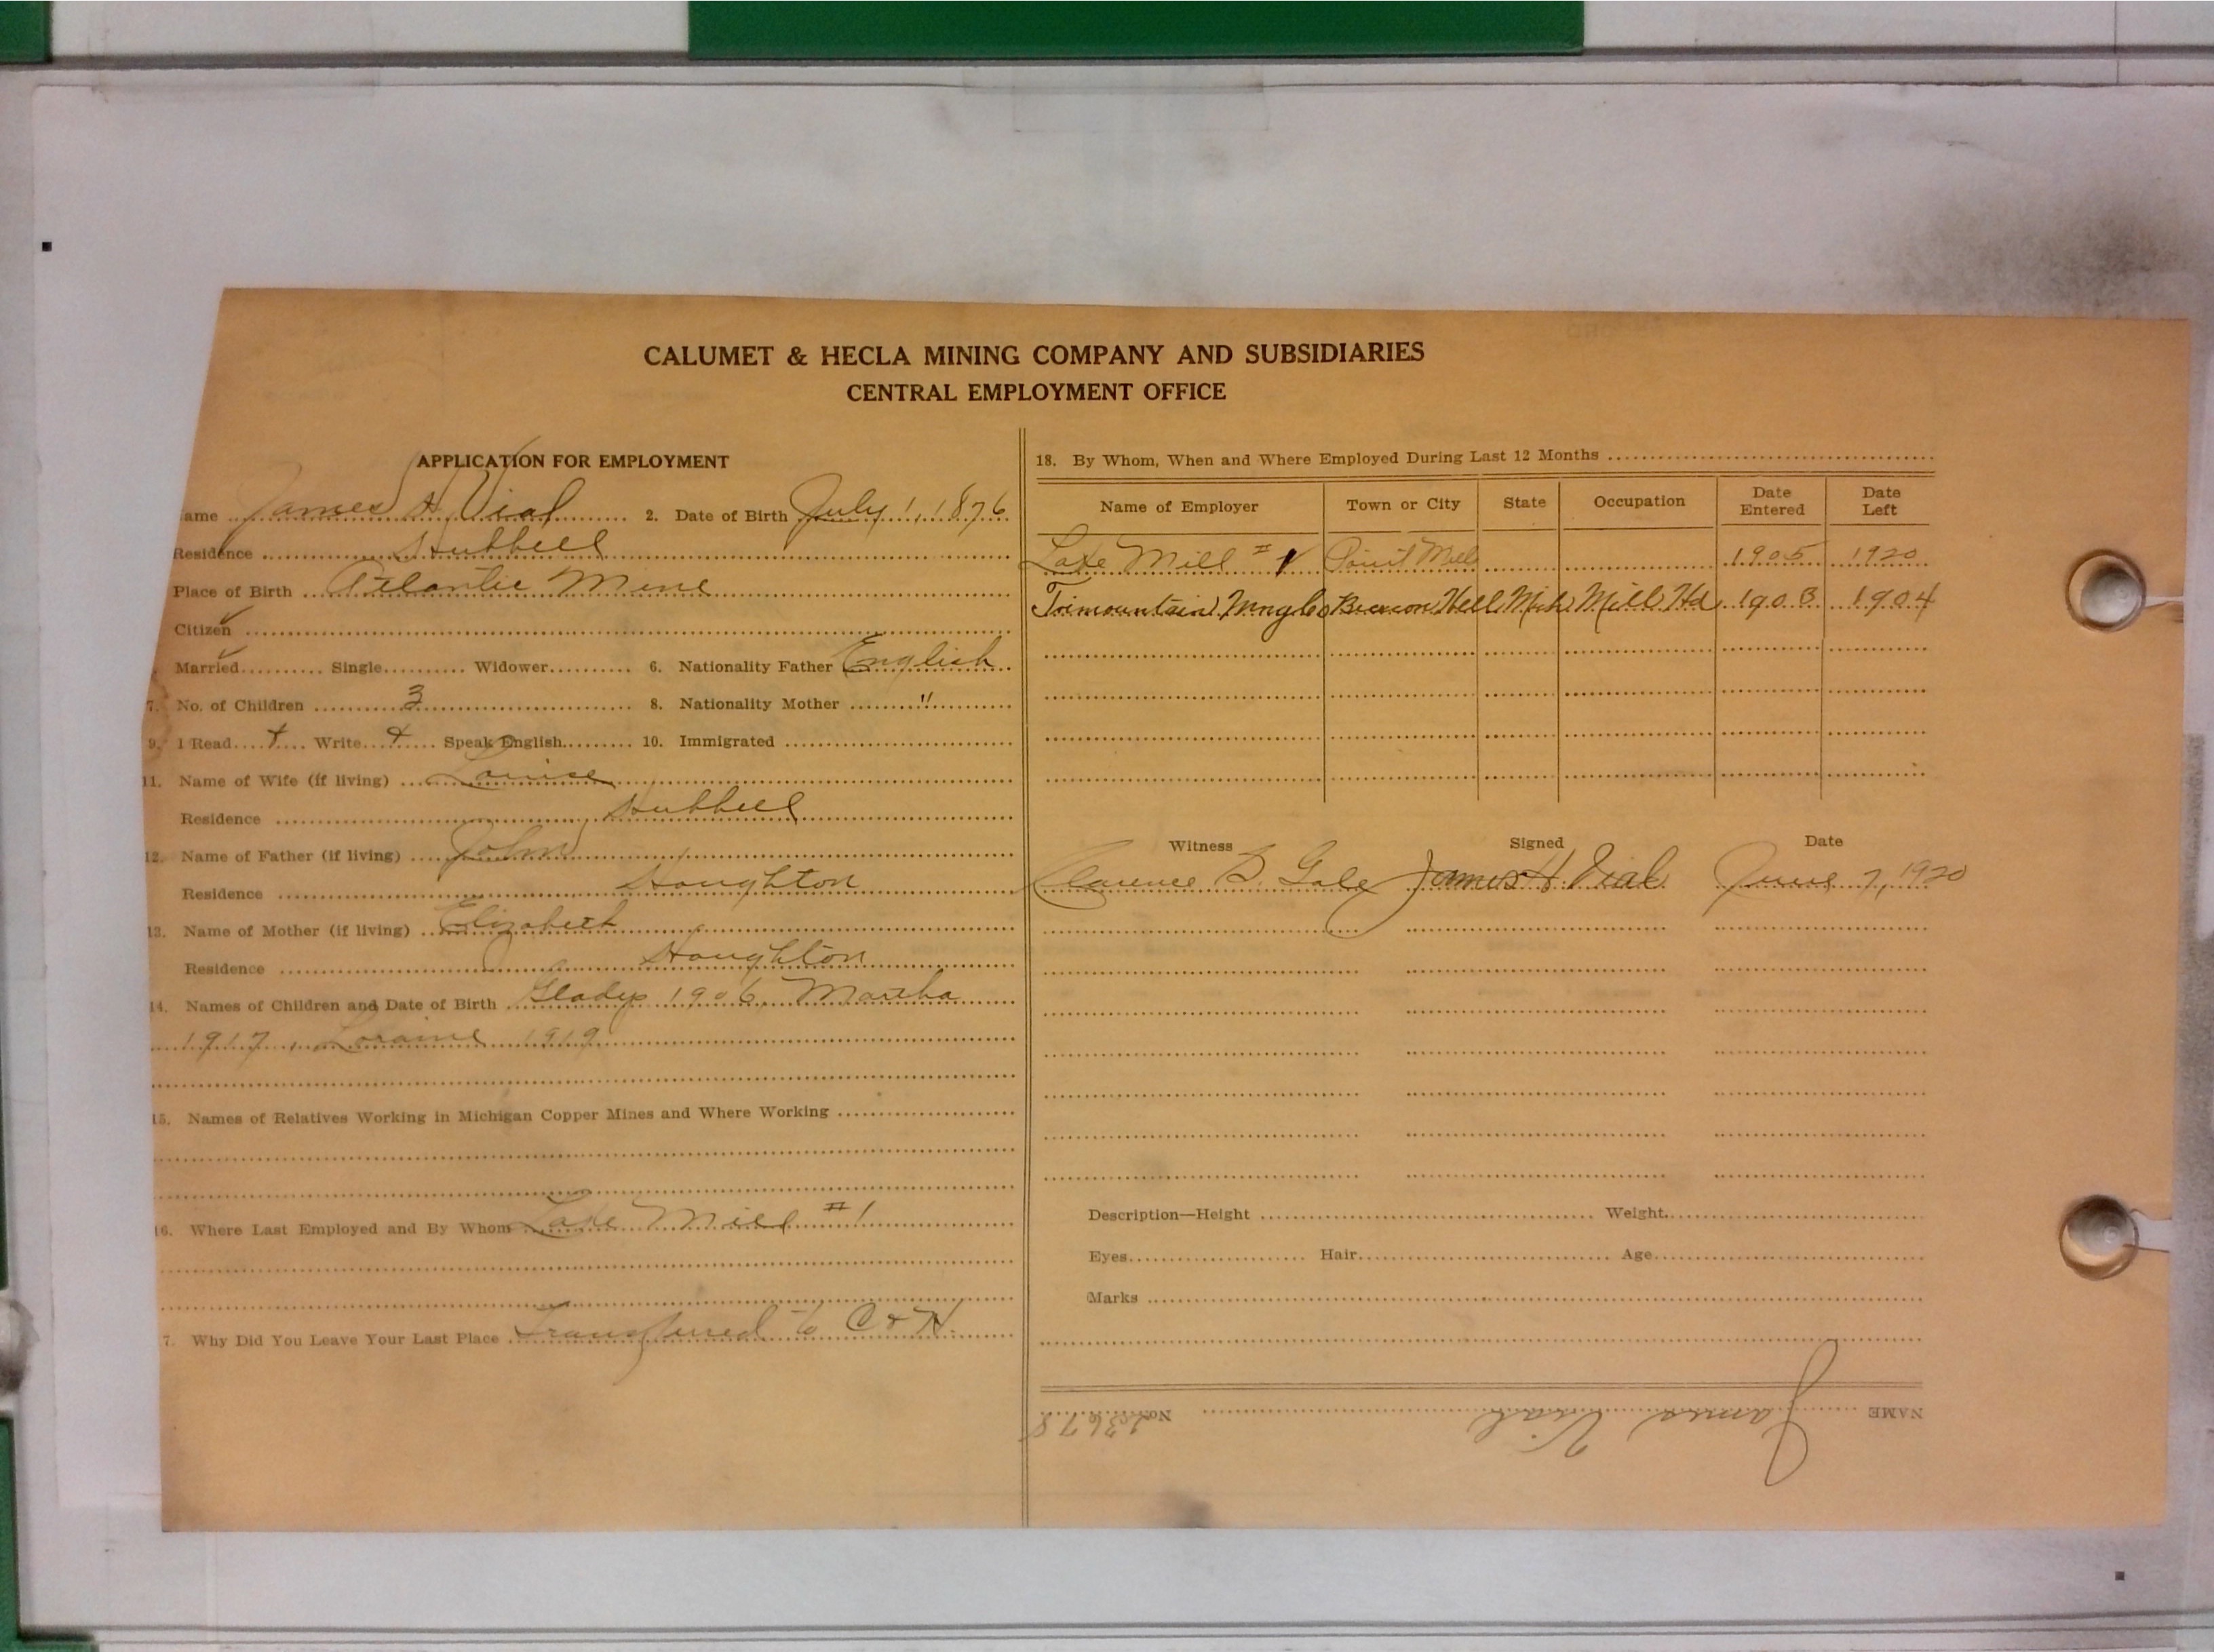 CALUMET & HECLA MINING COMPANY AND SUBSIDIARIES
CENTRAL EMPLOYMENT OFFICE
APPLICATION FOR EMPLOYMENT
ame James H Vial 2. Date of Birth July 1, 1876
Residence Hubbell
Place of Birth Atlantic Mine
Citizen ✓
Married ✓ Single Widower 6. Nationality Father English
7. No. of Children 3 8. Nationality Mother "
9. I Read + Write + Speak English 10. Immigrated
11. Name of Wife (if living) Louise
Residence Hubbell
12. Name of Father (if living) John
Residence Houghton
13. Name of Mother (if living) Elizabeth
Residence Houghton
14. Names of Children and Date of Birth Gladys 1906, Martha
1917, Loraine 1919
15. Names of Relatives Working in Michigan Copper Mines and Where Working
16. Where Last Employed and By Whom Lake Mill #1
7. Why Did You Leave Your Last Place Transferred to C & H.
18. By Whom, When and Where Employed During Last 12 Months
Name of Employer Town or City State Occupation Date Entered Date Left
Lake Mill #1 Point Mills 1905 1920
Trimountain Mng Co Beacon Hill Mich Mill Hd 1903 1904
Witness Signed Date
Clarence B. Gale James H Vial June 7, 1920
Description—Height Weight
Eyes Hair Age
Marks
NAME James Vial No. 23678